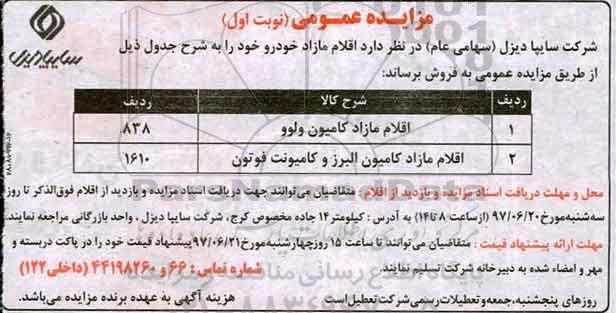 مزایده عمومی (نوبت اول)
سایپا دیزل
شرکت سایپا دیزل (سهامی عام) در نظر دارد اقلام مازاد خودرو خود را به شرح جدول ذیل
از طریق مزایده عمومی به فروش برساند:
ردیف شرح کالا ردیف
۱ اقلام مازاد کامیون ولوو ۸۳۸
۲ اقلام مازاد کامیون البرز و کامیونت فوتون ۱۶۱۰
محل و مهلت دریافت اسناد مزایده و بازدید از اقلام : متقاضیان می‌توانند جهت دریافت اسناد مزایده و بازدید از اقلام فوق‌الذکر تا روز
سه‌شنبه‌مورخ ۹۷/۰۶/۲۰ (ازساعت ۸ تا ۱۴) به آدرس : کیلومتر ۱۴ جاده مخصوص کرج، شرکت سایپا دیزل ، واحد بازرگانی مراجعه نمایند.
مهلت ارائه پیشنهاد قیمت : متقاضیان می‌توانند تا ساعت ۱۵ روزچهارشنبه‌مورخ ۹۷/۰۶/۲۱ پیشنهاد قیمت خود را در پاکت دربسته و
مهر و امضاء شده به دبیرخانه شرکت تسلیم نمایند. شماره تماس : ۶۶ و ۴۴۱۹۸۲۶۰ (داخلی ۱۲۲)
روزهای پنجشنبه،جمعه‌وتعطیلات رسمی شرکت تعطیل است هزینه آگهی به عهده برنده مزایده می‌باشد.